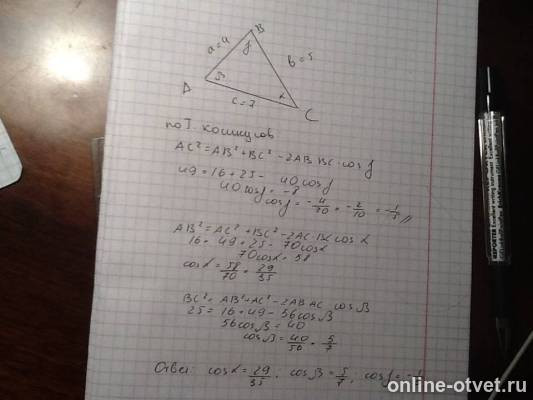 B
a = 4
γ
b = 5
A
β
α
c = 7
C
по Т. косинусов
AC² = AB² + BC² - 2AB BC · cos γ
49 = 16 + 25 - 40 cos γ
40 cos γ = -8
cos γ = - 4/20 = - 2/10 = - 1/5 //
AB² = AC² + BC² - 2AC · BC cos α
16 = 49 + 25 - 70 cos α
70 cos α = 58
cos α = 58/70 = 29/35
BC² = AB² + AC² - 2AB AC cos β
25 = 16 + 49 - 56 cos β
56 cos β = 40
cos β = 40/56 = 5/7
Ответ: cos α = 29/35, cos β = 5/7, cos γ = - 1
online-otvet.ru